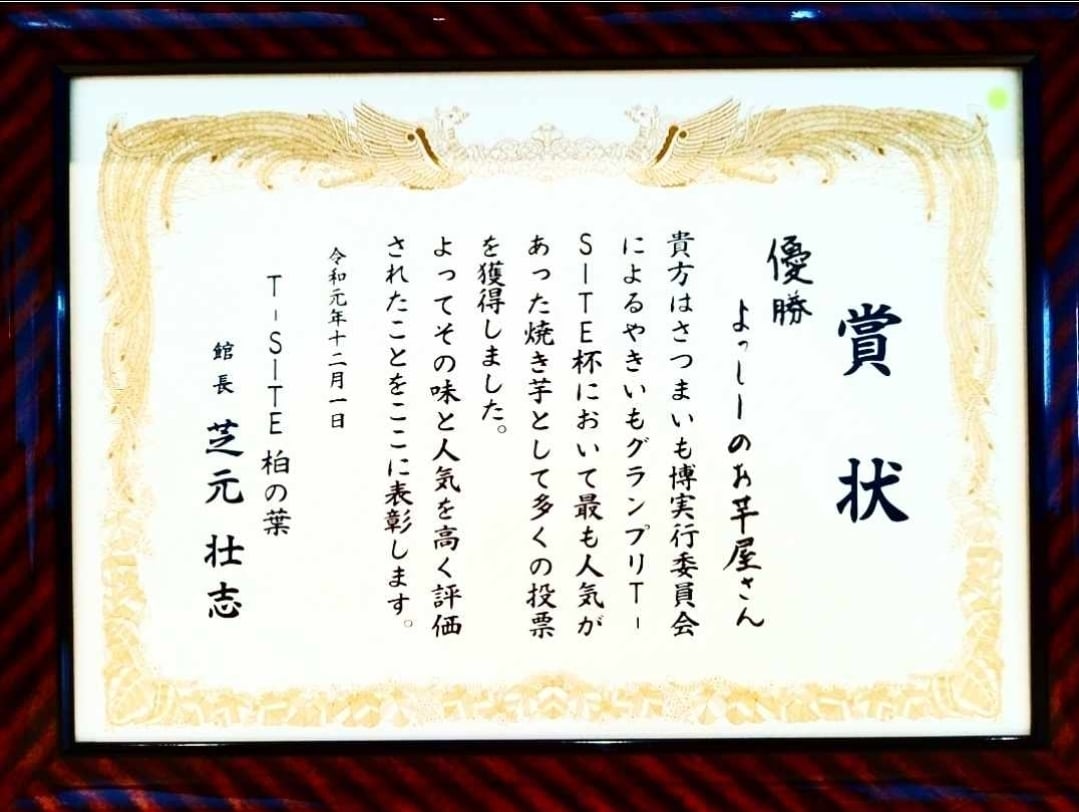 賞状
優勝
よっしーのお芋屋さん
貴方はさつまいも博実行委員会
によるやきいもグランプリT-
SITE杯において最も人気が
あった焼き芋として多くの投票
を獲得しました。
よってその味と人気を高く評価
されたことをここに表彰します。
令和元年十二月一日
T-SITE柏の葉
館長 芝元 壮志